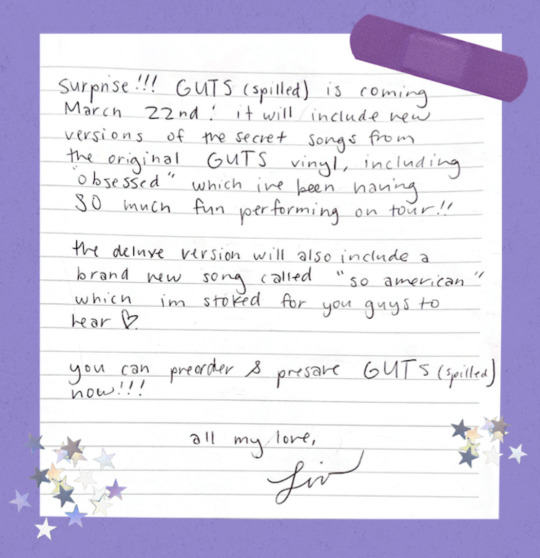 surprise!!! GUTS (spilled) is coming
March 22nd! it will include new
versions of the secret songs from
the original GUTS vinyl, including
"obsessed" which ive been having
SO much fun performing on tour!!
the deluxe version will also include a
brand new song called "so american"
which im stoked for you guys to
hear ♡
you can preorder & presave GUTS (spilled)
now!!!
all my love,
Liv